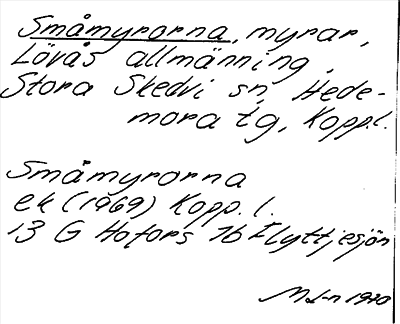 Småmyrorna, myrar,
Lövås allmänning,
Stora Skedvi sn, Hede-
mora tg, Koppl.
Småmyrorna
ek (1969) Kopp. l.
13 G Hofors 7b Flyttjesjön
M L-n 1970